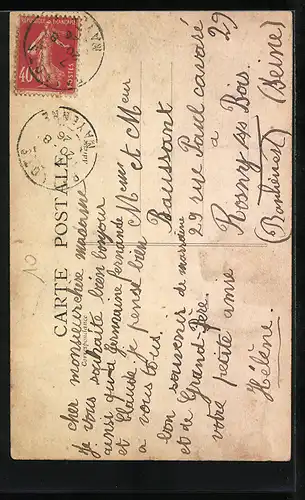 CARTE POSTALE
Correspondance
Adresse
cher monsieur chère madame
Je vous souhaite bien bonjour
ainsi qu'a Germaine Fernande
et Claude je pense bien
a vous tous
bon souvenir de marraine
et de Grand-Père.
votre petite amie
Hélène.
Mme et Mr
Baussant
29 rue Paul cavaré 29
a
Rosny s/s Bois
(Seine)
MAYENNE
40
POSTES
10